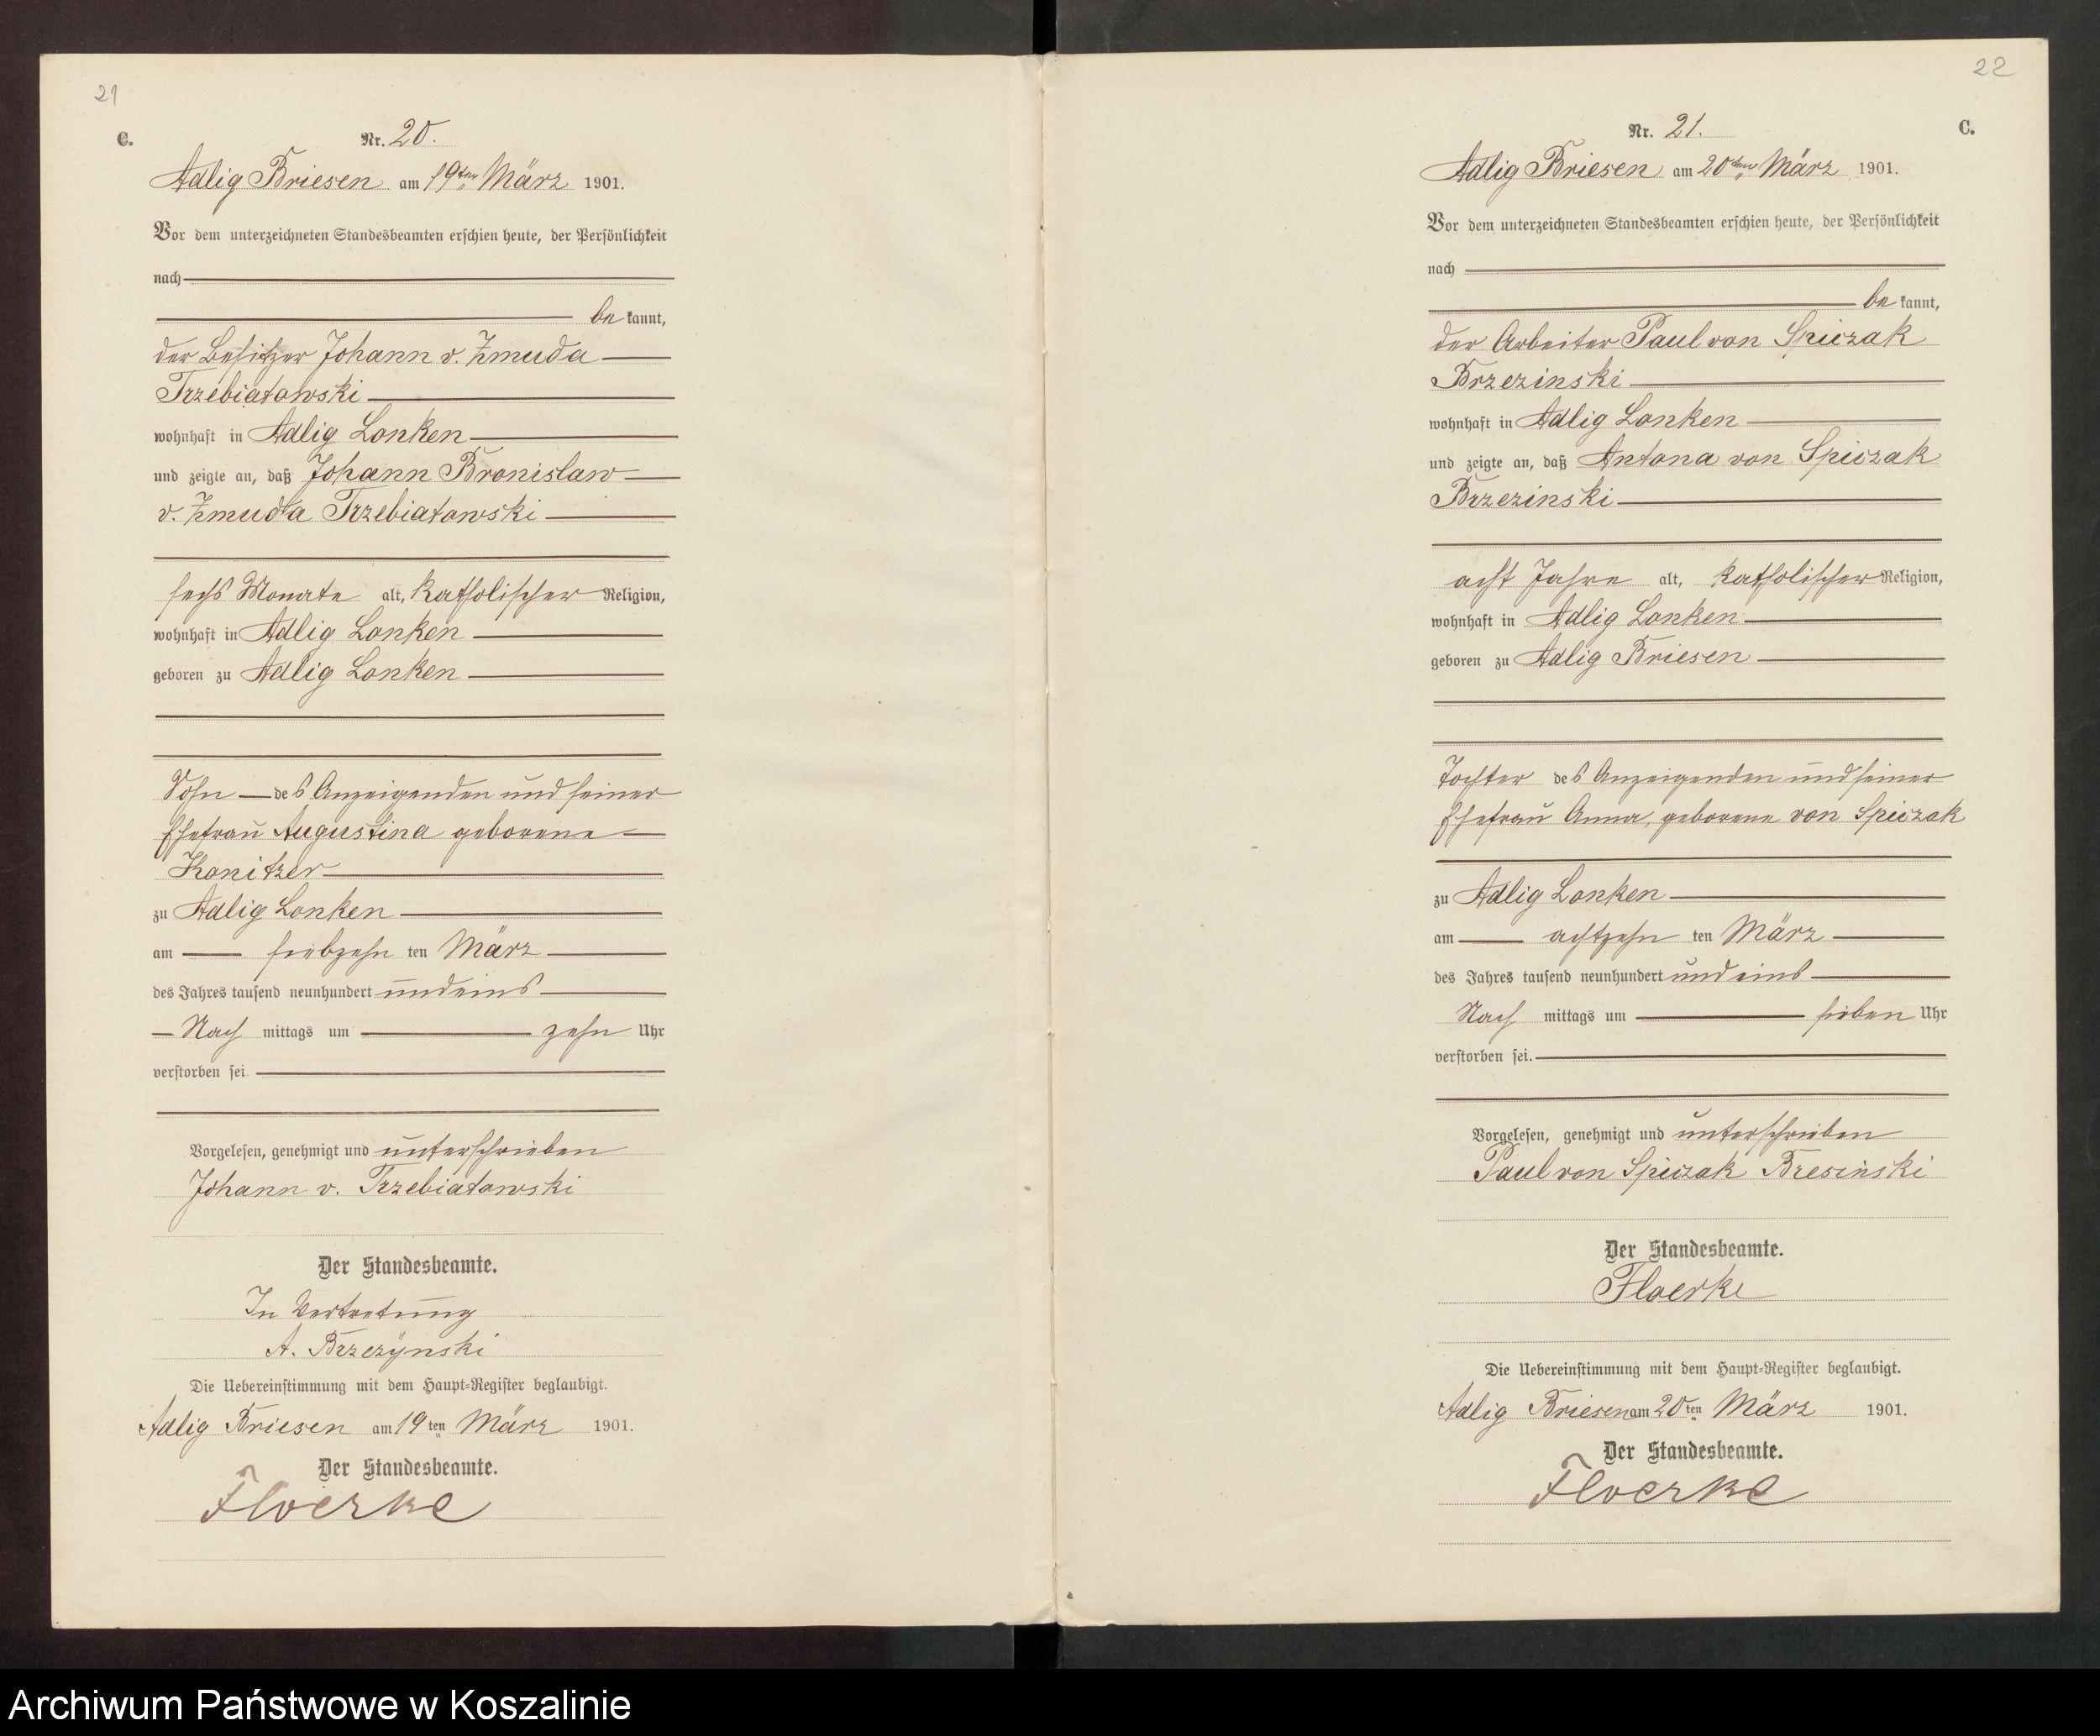 21
C.
Nr. 20.
Adlig Briesen am 19ten März 1901.
Vor dem unterzeichneten Standesbeamten erschien heute, der Persönlichkeit
nach
be kannt,
der Besitzer Johann v. Zmuda
Trzebiatowski
wohnhaft in Adlig Lonken
und zeigte an, daß Johann Bronislaw
v. Zmuda Trzebiatowski
sechs Monate alt, katholischer Religion,
wohnhaft in Adlig Lonken
geboren zu Adlig Lonken
Sohn des Anzeigenden und seiner
Ehefrau Augustina geborene
Konitzer
zu Adlig Lonken
am siebzehn ten März
des Jahres tausend neunhundert und eins
Nach mittags um zehn Uhr
verstorben sei.
Vorgelesen, genehmigt und unterschrieben
Johann v. Trzebiatowski
Der Standesbeamte.
In Vertretung
A. Brzezÿnski
Die Uebereinstimmung mit dem Haupt-Register beglaubigt.
Adlig Briesen am 19ten März 1901.
Der Standesbeamte.
Floerke
22
Nr. 21. C.
Adlig Briesen am 20ten März 1901.
Vor dem unterzeichneten Standesbeamten erschien heute, der Persönlichkeit
nach
be kannt,
der Arbeiter Paul von Spiczak
Brzezinski
wohnhaft in Adlig Lonken
und zeigte an, daß Antona von Spiczak
Brzezinski
acht Jahre alt, katholischer Religion,
wohnhaft in Adlig Lonken
geboren zu Adlig Briesen
Tochter des Anzeigenden und seiner
Ehefrau Anna, geborene von Spiczak
zu Adlig Lonken
am achtzehn ten März
des Jahres tausend neunhundert und eins
Nach mittags um sieben Uhr
verstorben sei.
Vorgelesen, genehmigt und unterschrieben
Paul von Spiczak Bresinski
Der Standesbeamte.
Floerke
Die Uebereinstimmung mit dem Haupt-Register beglaubigt.
Adlig Briesen am 20ten März 1901.
Der Standesbeamte.
Floerke
Archiwum Państwowe w Koszalinie